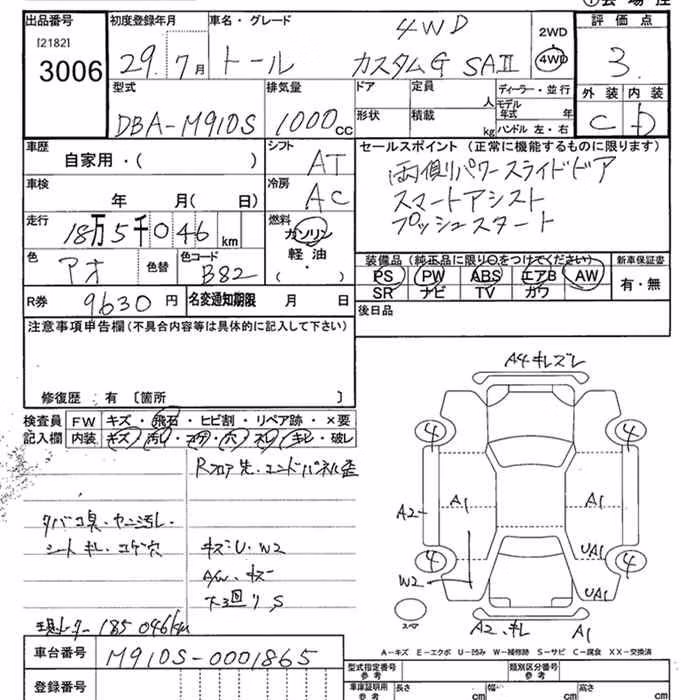 出品番号 初度登録年月 車名・グレード 4WD 2WD 評価点
[2182] 3006 29.7月 トール カスタムG SAⅡ 4WD 3.
型式 排気量 ドア 定員 人 ディーラー・並行 外装 内装
DBA-M910S 1000cc 形状 積載 kg モデル年式 年 ハンドル 左・右 C D
車歴 シフト セールスポイント (正常に機能するものに限ります)
自家用・( ) AT 両側パワースライドドア
車検 冷房 スマートアシスト
年 月( 日) AC プッシュスタート
走行 18万5千046km 燃料 ガソリン 軽油 ( ・ )
装備品 (純正品に限り○をつけてください) 新車保証書
色 アオ 色替 色コード B82 PS PW ABS エアB AW 有・無
SR ナビ TV カワ
R券 9630円 名変通知期限 月 日 後日品
注意事項申告欄(不具合内容等は具体的に記入して下さい)
修復歴:有 〔箇所 〕
検査員 FW キズ・飛石・ヒビ割・リペア跡・×要
記入欄 内装 キズ・汚れ・コゲ・穴・スレ・キレ・破レ
Rフロア先・エンドパネル歪
タバコ臭・ヤニ汚レ・
シートキレ・コゲ穴
キズ・U・W2
A/W・キズ
下廻りS
現メーター185046km
A4・キズズレ
4 4
A2 A1 A1
4 UA1 4
W2 UA1
スペア A2・キレ A1
A-キズ E-エクボ U-凹み W-補修跡 S-サビ C-腐食 XX-交換済
車台番号 M910S-0001865 型式指定番号 参考 類別区分番号 参考
登録番号 車庫証明用 参考 長さ cm 幅 cm 高さ cm